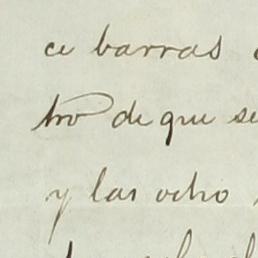 ce barras
tro de que se
y las ocho